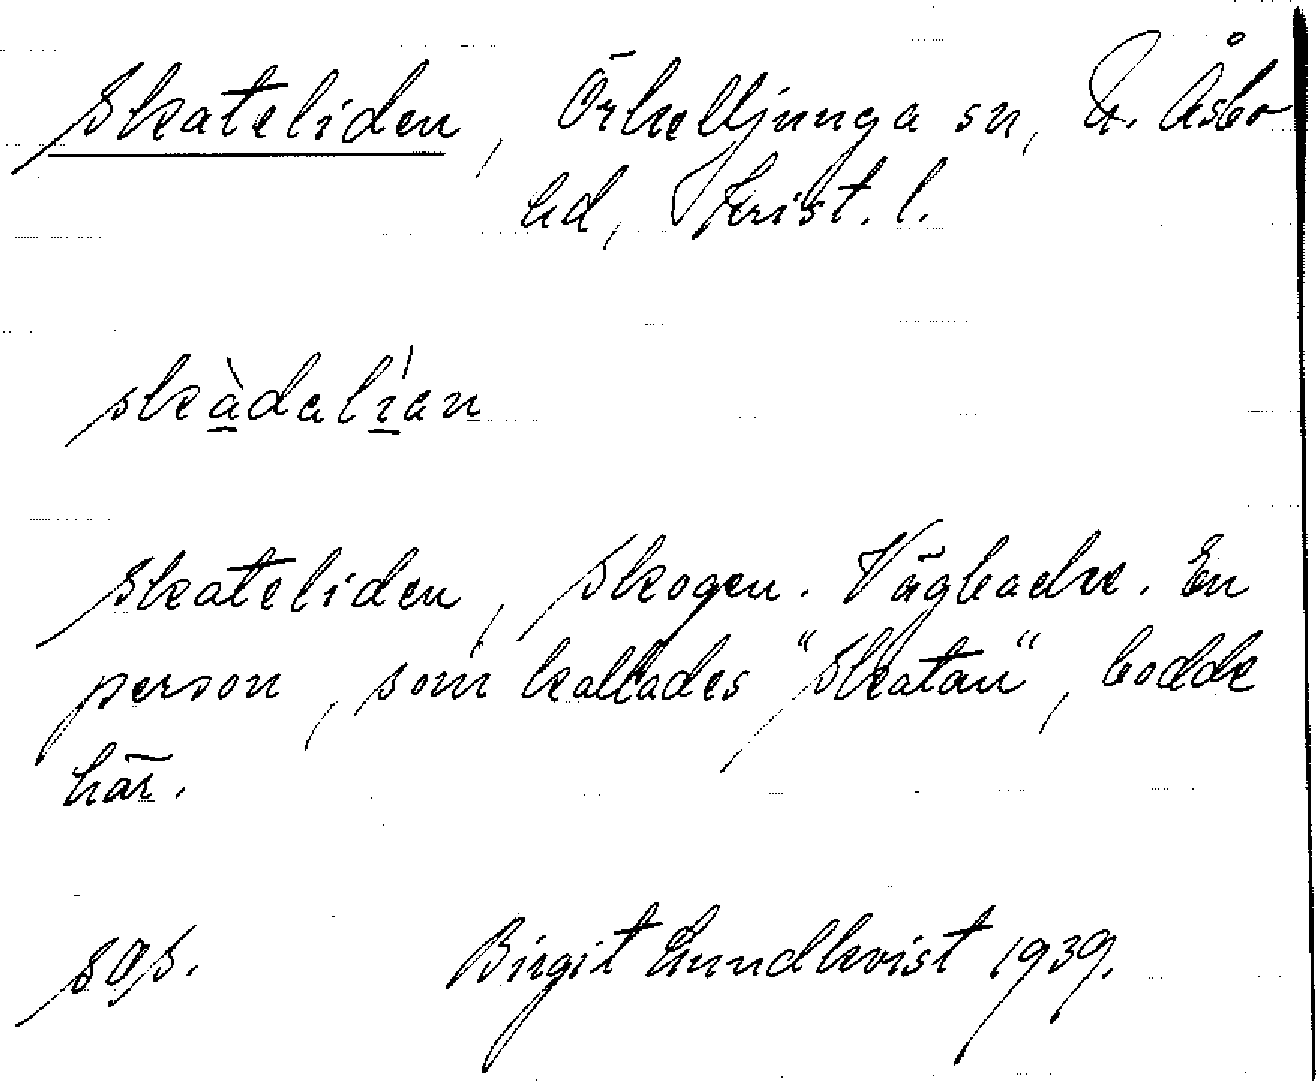 Skateliden, Örkelljunga sn, N. Åsbo
hd, Krist. l.
skàdalían
Skateliden, Skogen. Vägbacke. En
person, som kallades "Skatan", bodde
här.
Birgit Lundkvist 1939.